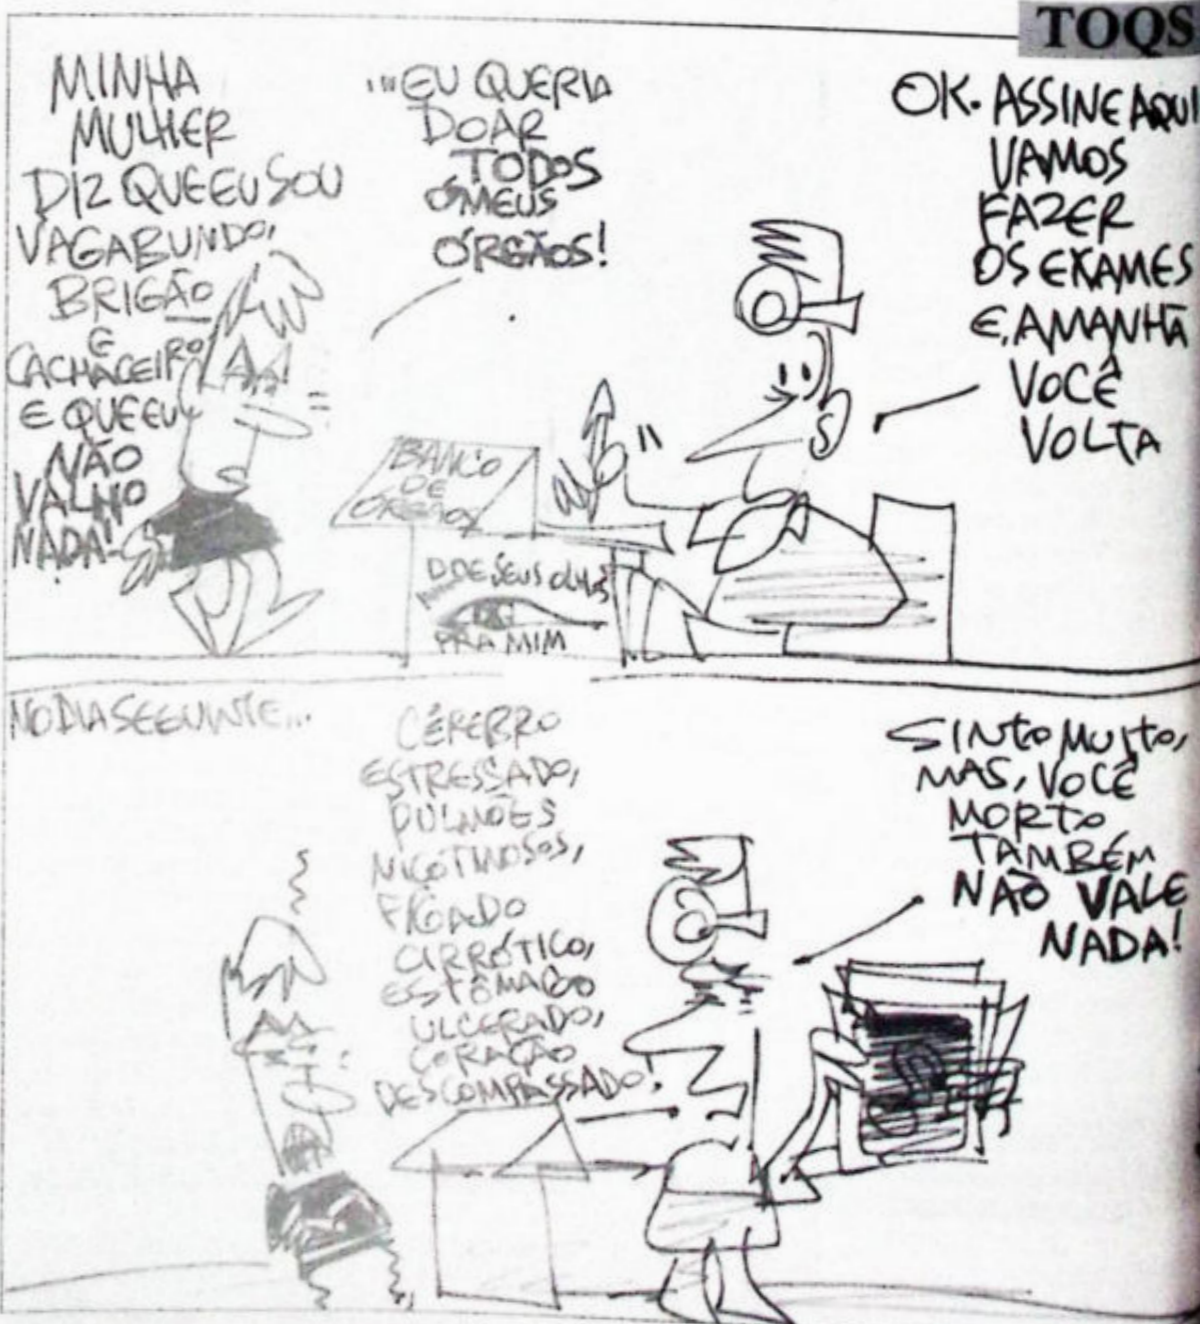 TOQS
MINHA
MULHER
DIZ QUE EU SOU
VAGABUNDO,
BRIGÃO
E
CACHACEIRO
E QUE EU
NÃO
VALHO
NADA!
...EU QUERIA
DOAR
TODOS
OS MEUS
ÓRGÃOS!
OK. ASSINE AQUI
VAMOS
FAZER
OS EXAMES
E, AMANHÃ
VOCÊ
VOLTA
BANCO
DE
ÓRGÃOS
DOE SEUS OLHOS
PRA MIM
NO DIA SEGUINTE...
CÉREBRO
ESTRESSADO,
PULMÕES
NICOTINOSOS,
FÍGADO
CIRRÓTICO,
ESTÔMAGO
ULCERADO,
CORAÇÃO
DESCOMPASSADO!
SINTO MUITO,
MAS, VOCÊ
MORTO
TAMBÉM
NÃO VALE
NADA!